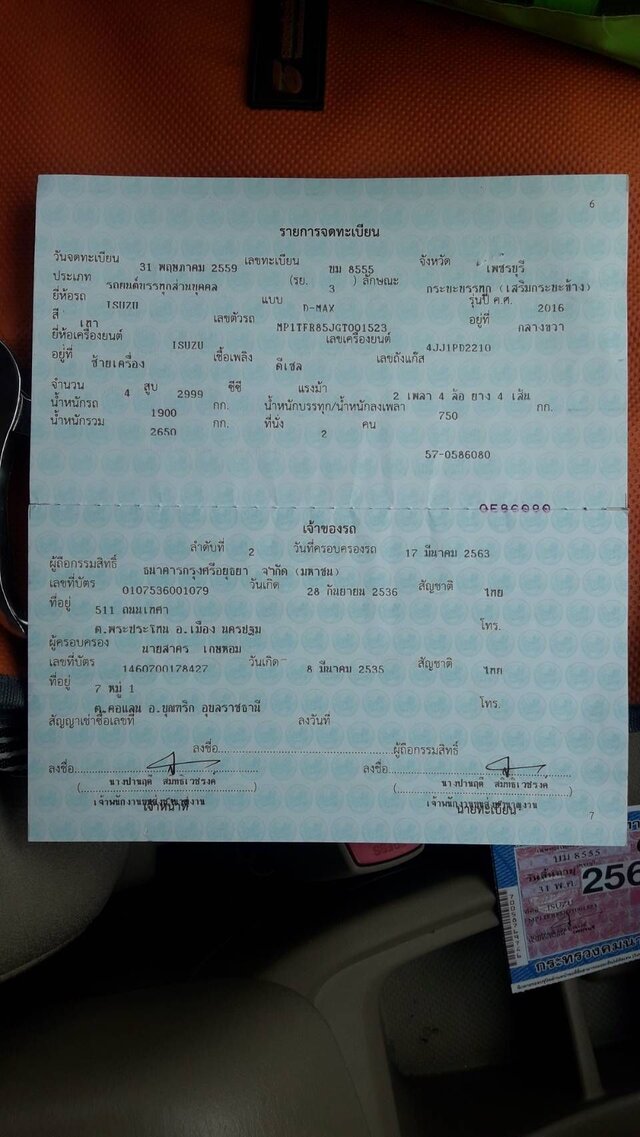 6
รายการจดทะเบียน
วันจดทะเบียน 31 พฤษภาคม 2559 เลขทะเบียน บม 8555 จังหวัด เพชรบุรี
ประเภท รถยนต์บรรทุกส่วนบุคคล (รย. 3 ) ลักษณะ กระบะบรรทุก (เสริมกระบะข้าง)
ยี่ห้อรถ ISUZU แบบ D-MAX รุ่นปี ค.ศ. 2016
สี เทา เลขตัวรถ MP1TFR85JGT001523 อยู่ที่ กลางขวา
ยี่ห้อเครื่องยนต์ ISUZU เลขเครื่องยนต์ 4JJ1PD2210
อยู่ที่ ซ้ายเครื่อง เชื้อเพลิง ดีเซล เลขถังแก๊ส
จำนวน 4 สูบ 2999 ซีซี แรงม้า 2 เพลา 4 ล้อ ยาง 4 เส้น
น้ำหนักรถ 1900 กก. น้ำหนักบรรทุก/น้ำหนักลงเพลา 750 กก.
น้ำหนักรวม 2650 กก. ที่นั่ง 2 คน
57-0586080
เจ้าของรถ
ลำดับที่ 2 วันที่ครอบครองรถ 17 มีนาคม 2563
ผู้ถือกรรมสิทธิ์ ธนาคารกรุงศรีอยุธยา จำกัด (มหาชน)
เลขที่บัตร 0107536001079 วันเกิด 28 กันยายน 2536 สัญชาติ ไทย
ที่อยู่ 511 ถนนเทศา
ต.พระประโทน อ.เมือง นครปฐม โทร.
ผู้ครอบครอง นายสาคร เกษหอม
เลขที่บัตร 1460700178427 วันเกิด 8 มีนาคม 2535 สัญชาติ ไทย
ที่อยู่ 7 หมู่ 1
ต.คอแลน อ.บุณฑริก อุบลราชธานี โทร.
สัญญาเช่าซื้อเลขที่ ลงวันที่
ลงชื่อ ผู้ถือกรรมสิทธิ์
ลงชื่อ ลงชื่อ
เจ้าพนักงานขนส่งชำนาญงาน เจ้าพนักงานขนส่งชำนาญงาน
เจ้าหน้าที่ นายทะเบียน
7
บม 8555
31 พ.ค. 256
ISUZU
กระทรวงคมนา